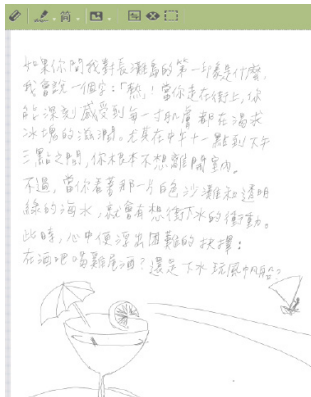 簡
如果你問我對長灘島的第一印象是什麼,
我會說一個字:「熱」!當你走在街上,你
能深刻感受到每一寸肌膚都在渴求
冰塊的滋潤。尤其在中午十一點到下午
三點之間,你根本不想離開室內。
不過,當你看著那一片白色沙灘和透明
綠的海水,就會有想衝下水的衝動。
此時,心中便浮出困難的抉擇:
在酒吧喝雞尾酒?還是下水玩風帆船?